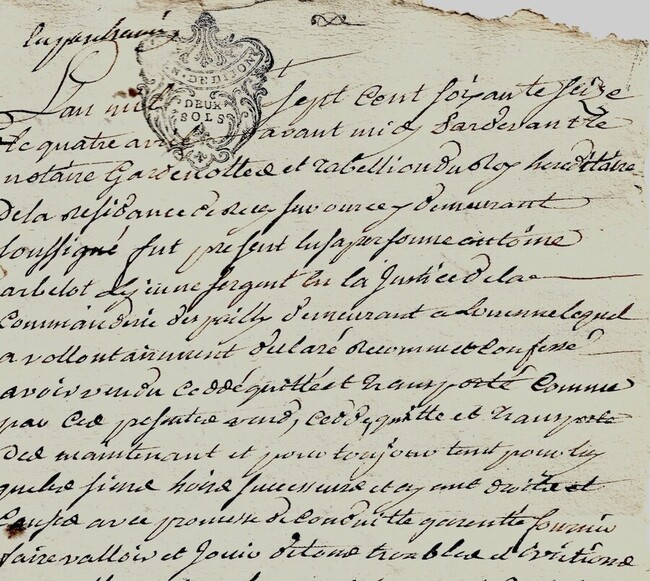 en parchemin
EN. DE DIJON
DEUX
SOLS
L'an mil sept cent soixante seize
le quatre avril avant midy pardevant le
notaire Gardenottes et tabellion du Roy hereditaire
de la residance de Recey sur ource y demeurant
soussigné fut présent en sa personne antoine
arbelot le jeune sergent en la Justice de la
Commanderie d'epailly demeurant a Lourenne lequel
a vollontairement declaré reconnu et confessé
avoir vendu cedde quitté et transporté comme
par ces présentes vend, cedde, quitte et transporte
des maintenant et pour toujours tant pour luy
que les siens hoirs successeurs et ayant droits et
cause avec promesse de conduitte garentie fournir
faire valloir et Jouir de tous troubles et evictions